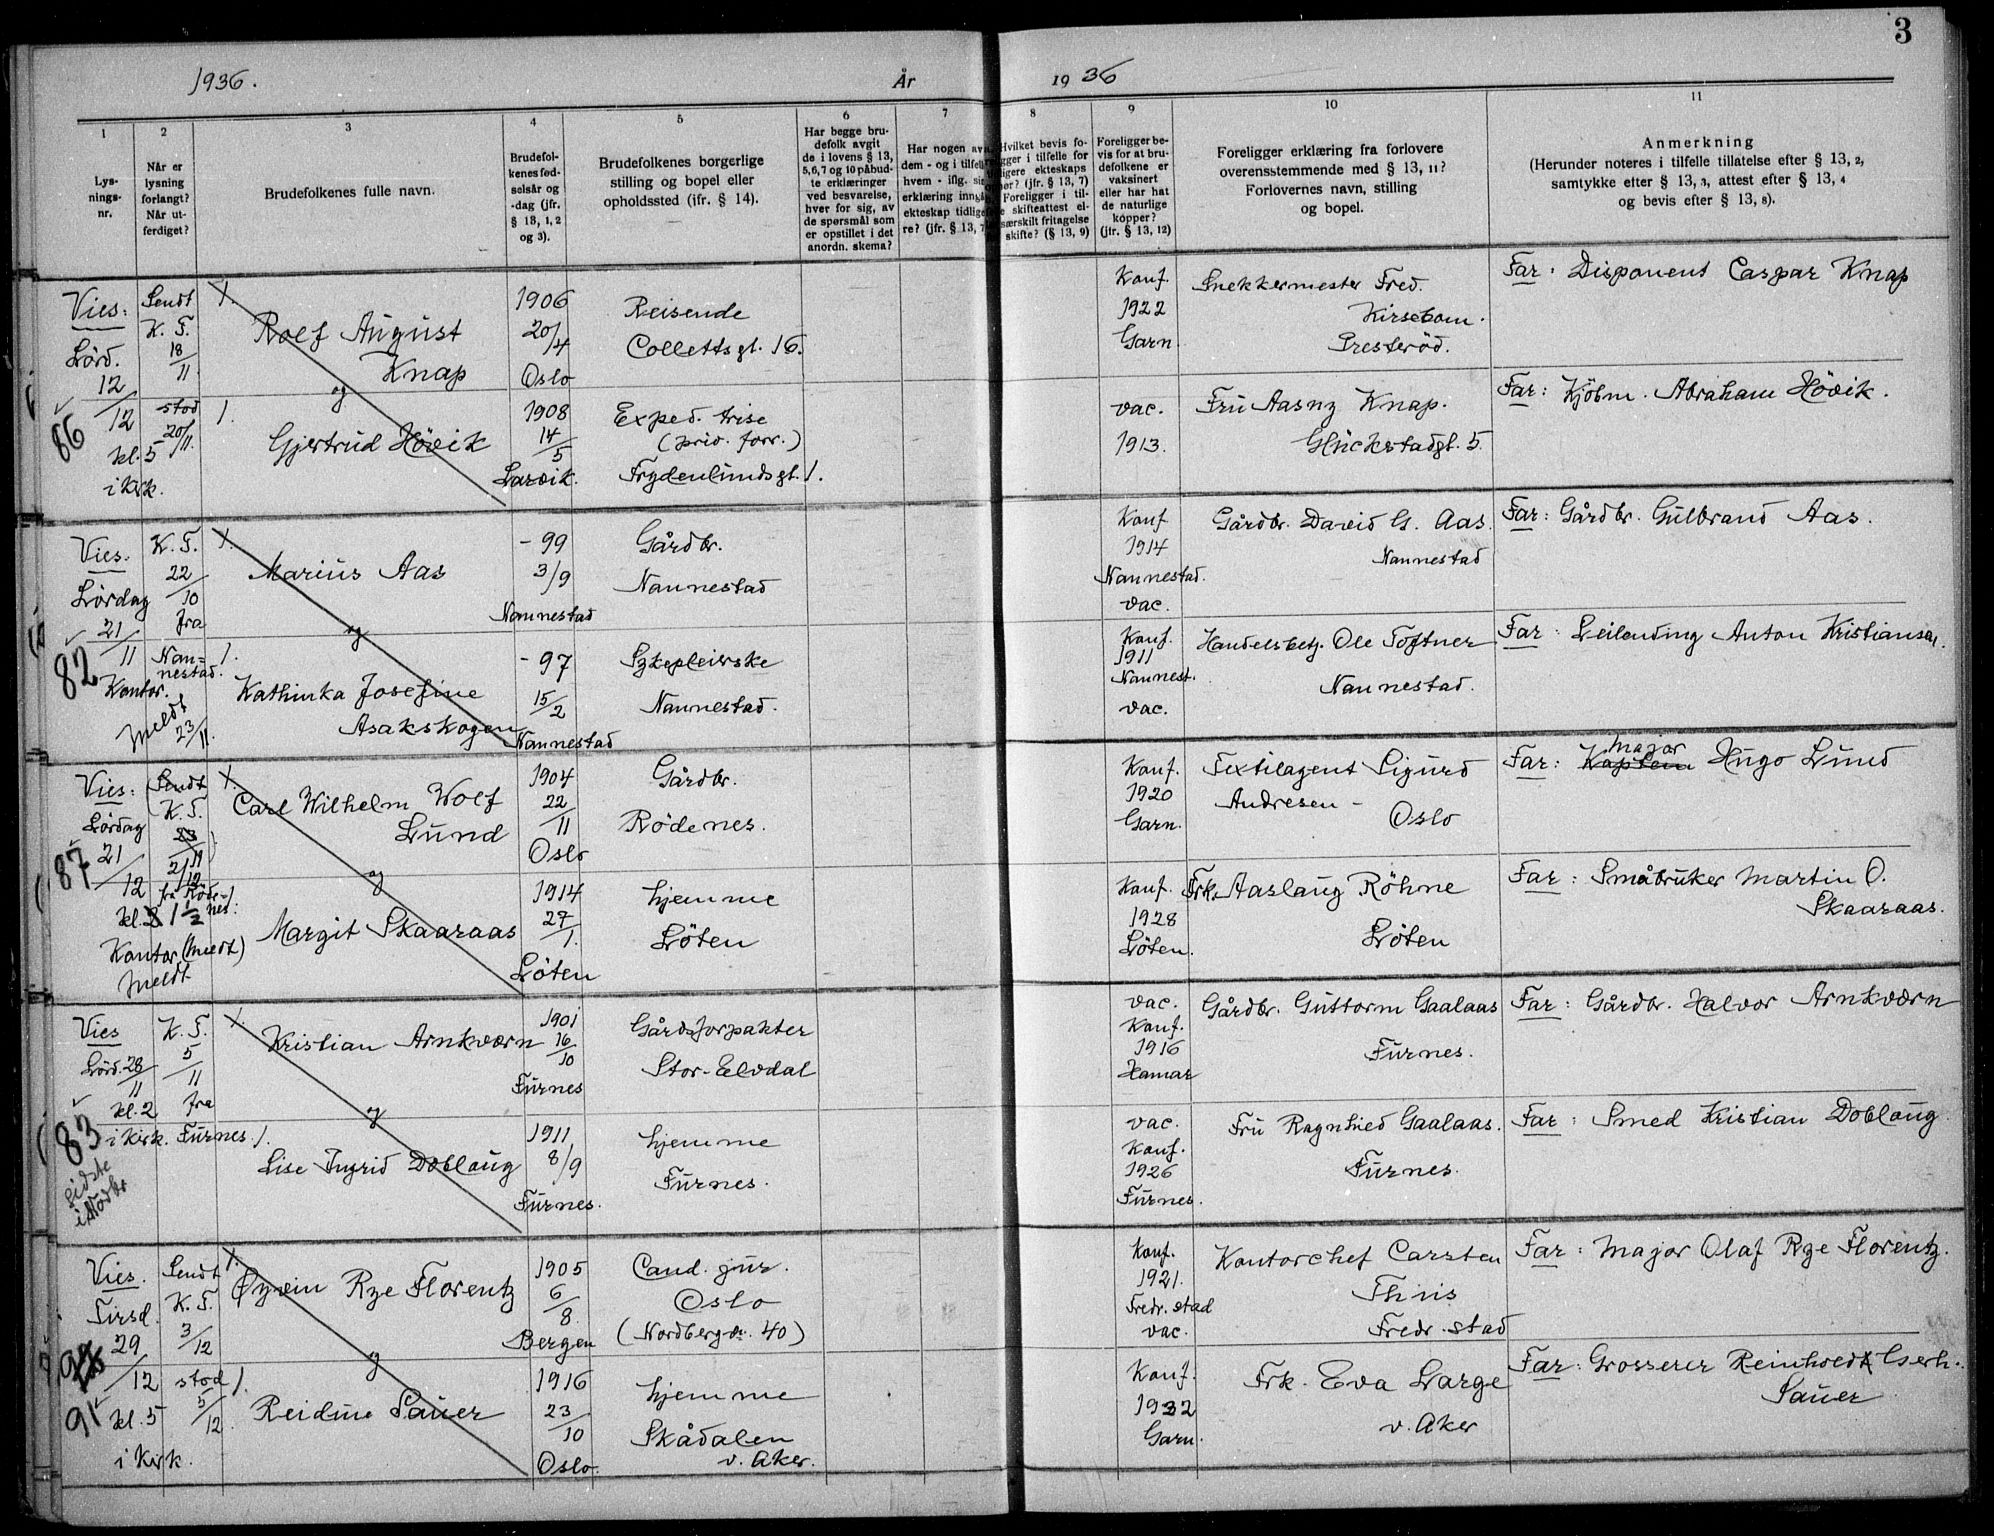 3
1936.
År
19 36
1
Lys-
nings-
nr.
2
Når er
lysning
forlangt?
Når ut-
ferdiget?
3
Brudefolkenes fulle navn.
4
Brudefol-
kenes fød-
selsår og
-dag (jfr.
§ 13, 1, 2
og 3).
5
Brudefolkenes borgerlige
stilling og bopel eller
opholdssted (ifr. § 14).
6
Har begge bru-
defolk avgit
de i lovens § 13,
5, 6, 7 og 10 påbud-
te erklæringer
ved besvarelse,
hver for sig, av
de spørsmål som
er opstillet i det
anordn. skema?
7
Har nogen av
dem - og i tilfel
hvem - iflg. si
erklæring inngå
ekteskap tidlige
re? (jfr. § 13, 7
8
Hvilket bevis fo-
gger i tilfelle for
ligere ekteskaps
hør? (jfr. § 13, 7)
Foreligger i til-
e skifteattest el-
særskilt fritagelse
skifte? (§ 13, 9)
9
Foreligger be-
vis for at bru-
defolkene er
vaksinert
eller har hat
de naturlige
kopper?
(jfr. § 13, 12)
10
Foreligger erklæring fra forlovere
overensstemmende med § 13, 11?
Forlovernes navn, stilling
og bopel.
11
Anmerkning
(Herunder noteres i tilfelle tillatelse efter § 13, 2,
samtykke efter § 13, 3, attest efter § 13, 4
og bevis efter § 13, 8).
Vies:
Lörd.
12/12
86
kl. 5
i Kirk.
Sendt
K. F.
18/11
stod
20/11.
1.
Rolf August
Knap
og
1.
Gjertrud Hövik
1906
20/4
Oslo
1908
14/5
Larvik.
Reisende
Collettsgt. 16.
Exped. trise
(priv. forr.)
Frydenlundsgt. 1.
Konf.
1922
Garn.
vac.
1913.
Snekkermester Fred.
Kirsebom.
Presteröd.
Fru Aasny Knap.
Glückstadgt. 5.
Far: Disponent Caspar Knap
Far: Kjöbm. Abraham Hövik.
Vies.
Lördag
21/11
82
Kontor.
meldt
23/11.
K. F.
22/10
fra
Nan=
nestad.
1.
Marius Aas
og
1.
Kathinka Josefine
Asakskogen
- 99
3/9
Nannestad
- 97
15/2
Nannestad
Gårdbr.
Nannestad
Sykepleierske
Nannestad.
Konf
1914
Nannestad.
vac.
Konf.
1911
Nannest.
vac.
Gårdbr. David G. Aas.
Nannestad
Handelsbetj. Ole Toftner
Nannestad.
Far: Gårdbr. Gulbrand Aas.
Far: Leilending Anton Kristiansen.
Vies:
Lördag
21/12
87
kl. 1 1/2
Kontor (meldt)
meldt
Sendt
K. F.
23/11
2/12
fra Röde-
nes:
1.
Carl Wilhelm Wolf
Lund
og
1.
Margit Skaaraas
1904
22/11
Oslo
1914
27/1.
Löten
Gårdbr.
Rödenes.
hjemme
Löten
Konf.
1920
Garn.
Konf.
1928
Löten.
Textilagent Sigurd
Andresen -
Oslo
Frk. Aaslaug Röhne
Löten
Far: Kaptein major Hugo Lund
Far: Småbruker Martin O.
Skaaraas.
Vies
Lörd. 28/11
kl. 2
83
i Kirk.
sidste
i Nodbr
K. F.
5/11
fra
Furnes.
1.
Kristian Arnkværn
og
1.
Lise Ingrid Doblaug
1901
16/10
Furnes
1911
8/9
Furnes.
Gårdsforpakter
Stor-Elvdal
hjemme
Furnes.
vac.
Konf.
1916
Hamar
vac.
Konf.
1926
Furnes.
Gårdbr. Guttorm Gaalaas
Furnes.
Fru Ragnhild Gaalaas.
Furnes.
Far: Gårdbr. Halvor Arnkværn
Far: Smed Kristian Doblaug
Vies.
Tirsd.
29/12
91
kl. 5
i Kirk.
Sendt
K. F.
3/12
stod
5/12
1.
Øyvin Rye Florentz
og
1.
Reidun Sauer
1905
6/8.
Bergen
1916
23/10
Oslo.
Cand. jur.
Oslo
(Nordberg-v. 40)
hjemme
Skådalen
v. Aker.
Konf.
1921.
Fredr.stad
vac.
Konf.
1932
Garn.
Kontorchef Carsten
Thiis
Fredr.stad
Frk. Eva Large
v. Aker
Far: Major Olaf Rye Florentz.
Far: Grosserer Reinholdt Gerh.
Sauer